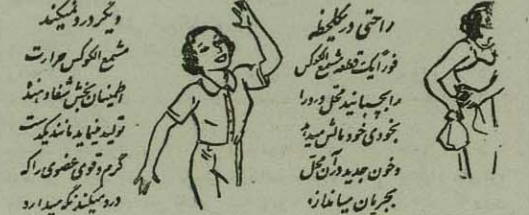 راحتی در یکلحظه
فوراً یکقطعه مشمع الکوکس
را بچسبانید محل درد را
بخودی خود مالش میدهد
وخون جدید در آن محل
بجریان میاندازد
دیگر درد نمیکند
مشمع الکوکس حرارت
اطمینان بخش شفا دهنده
تولید مینماید مانند یکدست
گرم و قوی عضوی را که
درد میکند نگه میدارد